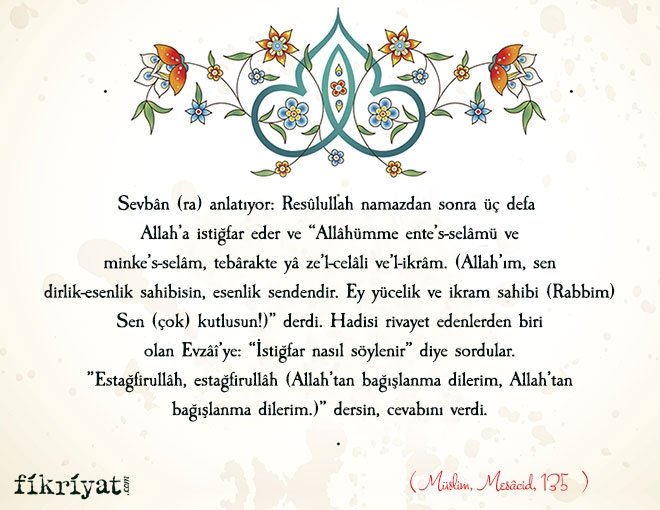 Sevbân (ra) anlatıyor: Resûlullah namazdan sonra üç defa
Allah'a istiğfar eder ve “Allâhümme ente's-selâmü ve
minke's-selâm, tebârakte yâ ze'l-celâli ve'l-ikrâm. (Allah'ım, sen
dirlik-esenlik sahibisin, esenlik sendendir. Ey yücelik ve ikram sahibi (Rabbim)
Sen (çok) kutlusun!)” derdi. Hadisi rivayet edenlerden biri
olan Evzâî'ye: “İstiğfar nasıl söylenir” diye sordular.
”Estağfirullâh, estağfirullâh (Allah'tan bağışlanma dilerim, Allah'tan
bağışlanma dilerim.)” dersin, cevabını verdi.
fikriyat.com
( Müslim, Mesâcid, 135 )